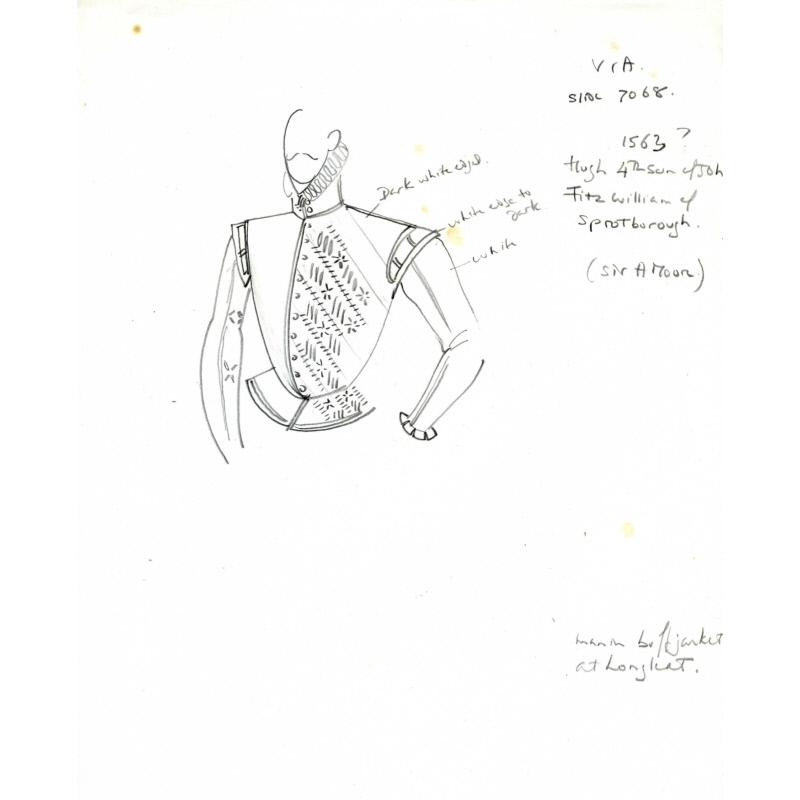 V&A.
SIDE 7068.
1563?
Hugh 4th son of Joh
Fitzwilliam of
Sprotborough.
(Sir A Moor)
Dark white edged.
white edge to
dark
white
man in buff jacket
at Longleat.